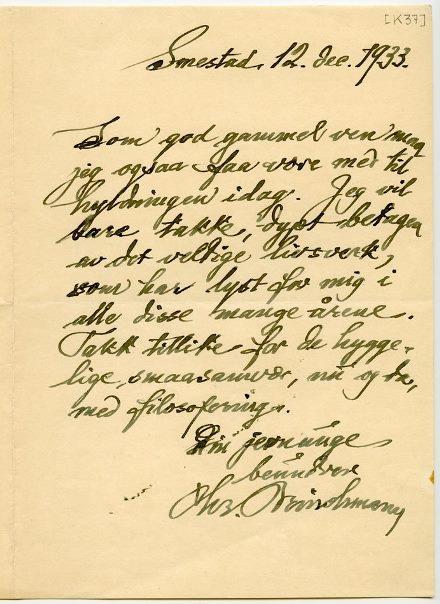 [K37]
Smestad, 12. dec. 1933.
Som god gammel ven maa
jeg ogsaa faa være med til
hyldningen idag. Jeg vil
bare takke, dypt betagen
av det veldige livsverk,
som har lyst for mig i
alle disse mange årene.
Takk tillike for de hygge-
lige smaasamvær, nu og da,
med filosofering.
Din jevnunge
beundrer
Chr.